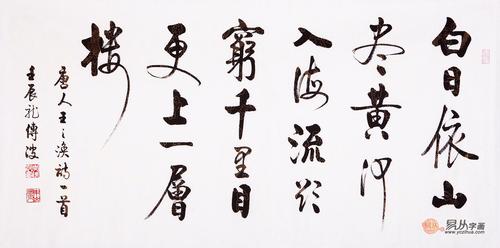 白日依山
尽黄河
入海流欲
窮千里目
更上一層
樓
唐人王之渙詩一首
壬辰龍傳波
易从字画
www.yczihua.com